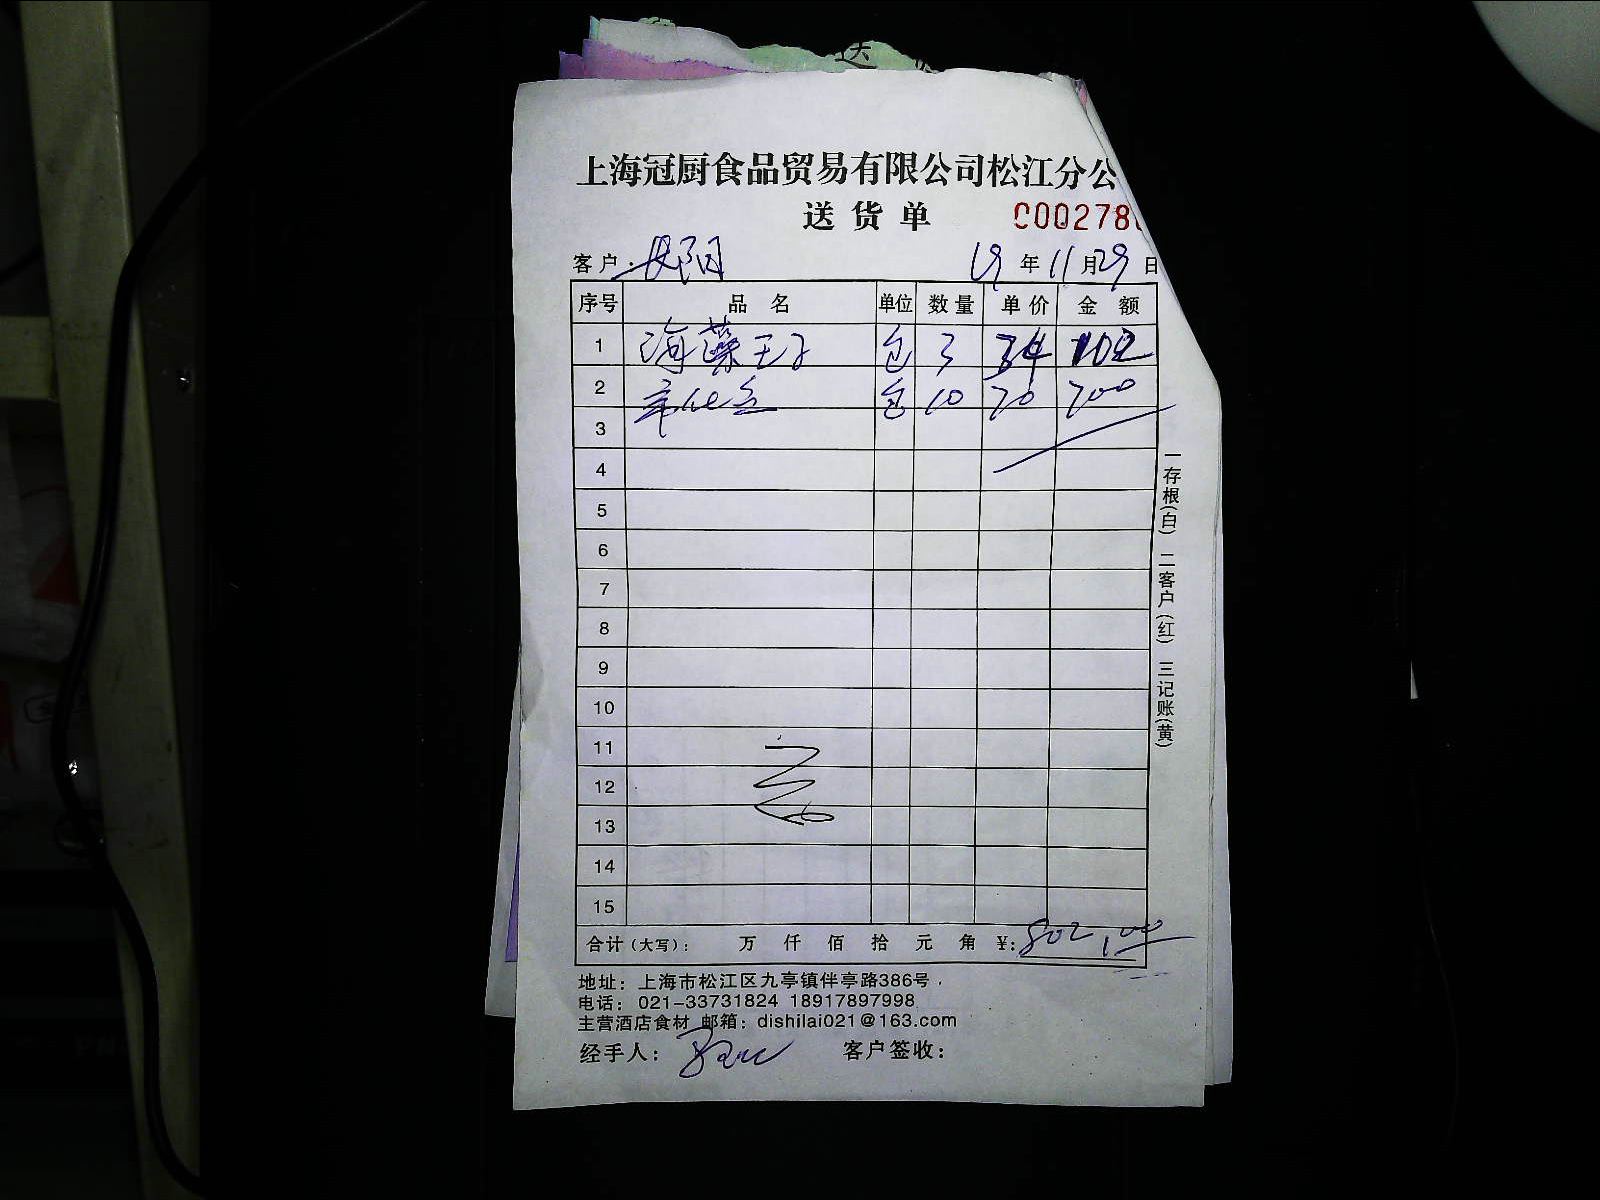 送
上海冠厨食品贸易有限公司松江分公
送货单 C00278
客户: 阳 19年11月29日
序号 品名 单位 数量 单价 金额
1 海藻王子 包 3 34 102
2 包 10 70 700
3
4
5
6
7
8
9
10
11
12
13
14
15
合计(大写): 万 仟 佰 拾 元 角 ¥:802.00
一存根(白) 二客户(红) 三记账(黄)
地址:上海市松江区九亭镇伴亭路386号
电话:021-33731824 18917897998
主营酒店食材 邮箱:dishilai021@163.com
经手人: 客户签收: